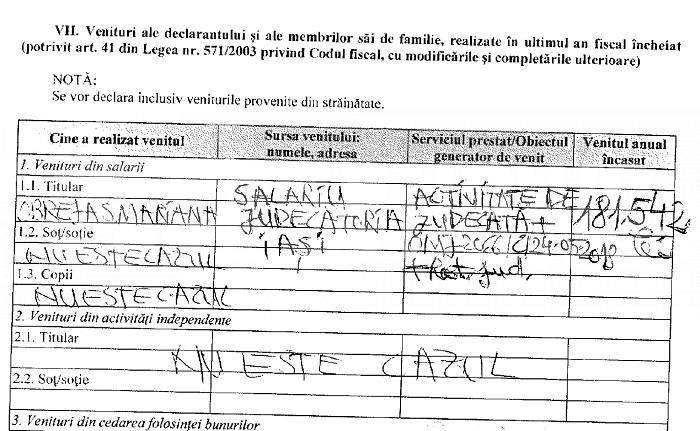 VII. Venituri ale declarantului şi ale membrilor săi de familie, realizate în ultimul an fiscal încheiat
(potrivit art. 41 din Legea nr. 571/2003 privind Codul fiscal, cu modificările şi completările ulterioare)
NOTĂ:
Se vor declara inclusiv veniturile provenite din străinătate.
Cine a realizat venitul
Sursa venitului: numele, adresa
Serviciul prestat/Obiectul generator de venit
Venitul anual încasat
1. Venituri din salarii
1.1. Titular
SALARIU
ACTIVITATE DE
181.542
MARIANA
JUDECATORIA
JUDECATA +
1.2. Soţ/soţie
IAŞI
NU ESTE CAZUL
jud.
1.3. Copii
NU ESTE CAZUL
2. Venituri din activităţi independente
2.1. Titular
NU ESTE CAZUL
2.2. Soţ/soţie
3. Venituri din cedarea folosinţei bunurilor